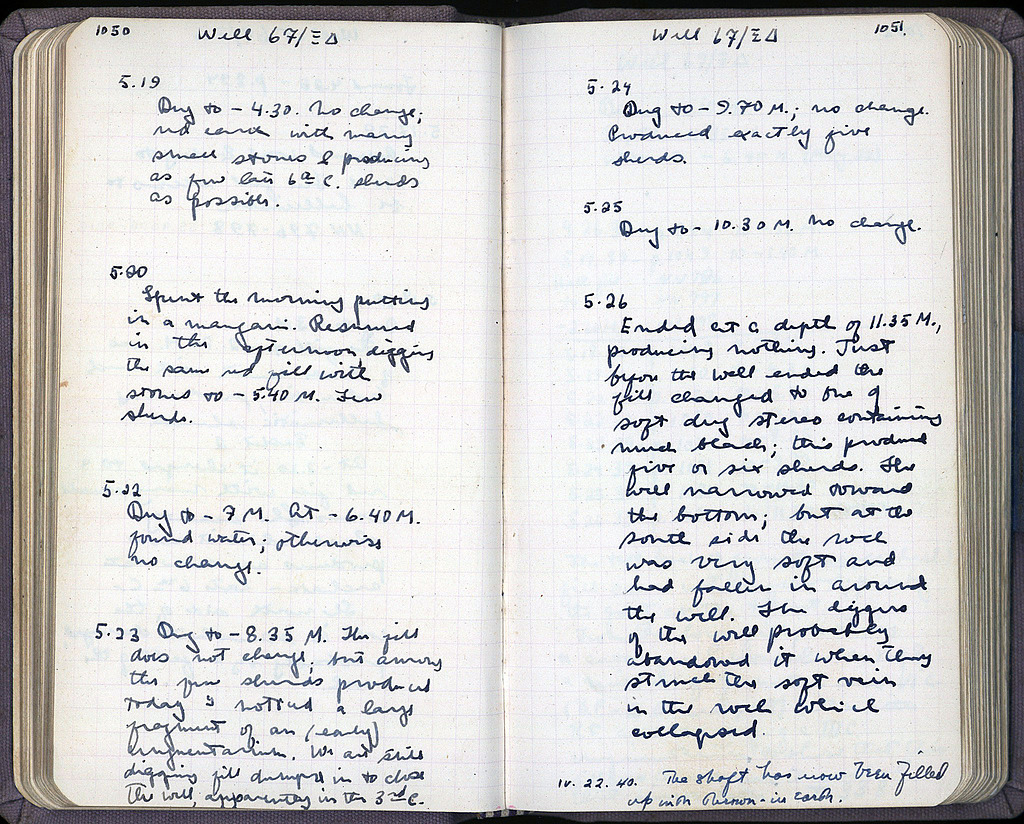 1050
Well 67/ΞΔ
5.19
Dug to - 4.30. No change;
red earth with many
small stones & producing
as few late 6th C. sherds
as possible.
5.20
Spent the morning putting
in a mangani. Resumed
in the afternoon digging
the same red fill with
stones to - 5.40 M. Few
sherds.
5.22
Dug to - 7 M. At - 6.40 M.
found water; otherwise
no change.
5.23 Dug to - 8.35 M. The fill
does not change, but among
the few sherds produced
today I noticed a large
fragment of an (early)
unguentarium. We are still
digging fill dumped in to close
the well, apparently in the 3rd C.
Well 67/ΞΔ
1051
5.24
Dug to - 9.70 M.; no change.
Produced exactly five
sherds.
5.25
Dug to - 10.30 M. No change.
5.26
Ended at a depth of 11.35 M.,
producing nothing. Just
before the well ended the
fill changed to one of
soft dug stereo containing
much black; this produced
five or six sherds. The
well narrowed toward
the bottom; but at the
south side the rock
was very soft and
had fallen in around
the well. The diggers
of the well probably
abandoned it when they
struck the soft vein
in the rock which
collapsed.
IV. 22. 40. The shaft has now been filled
up with thrown-in earth.